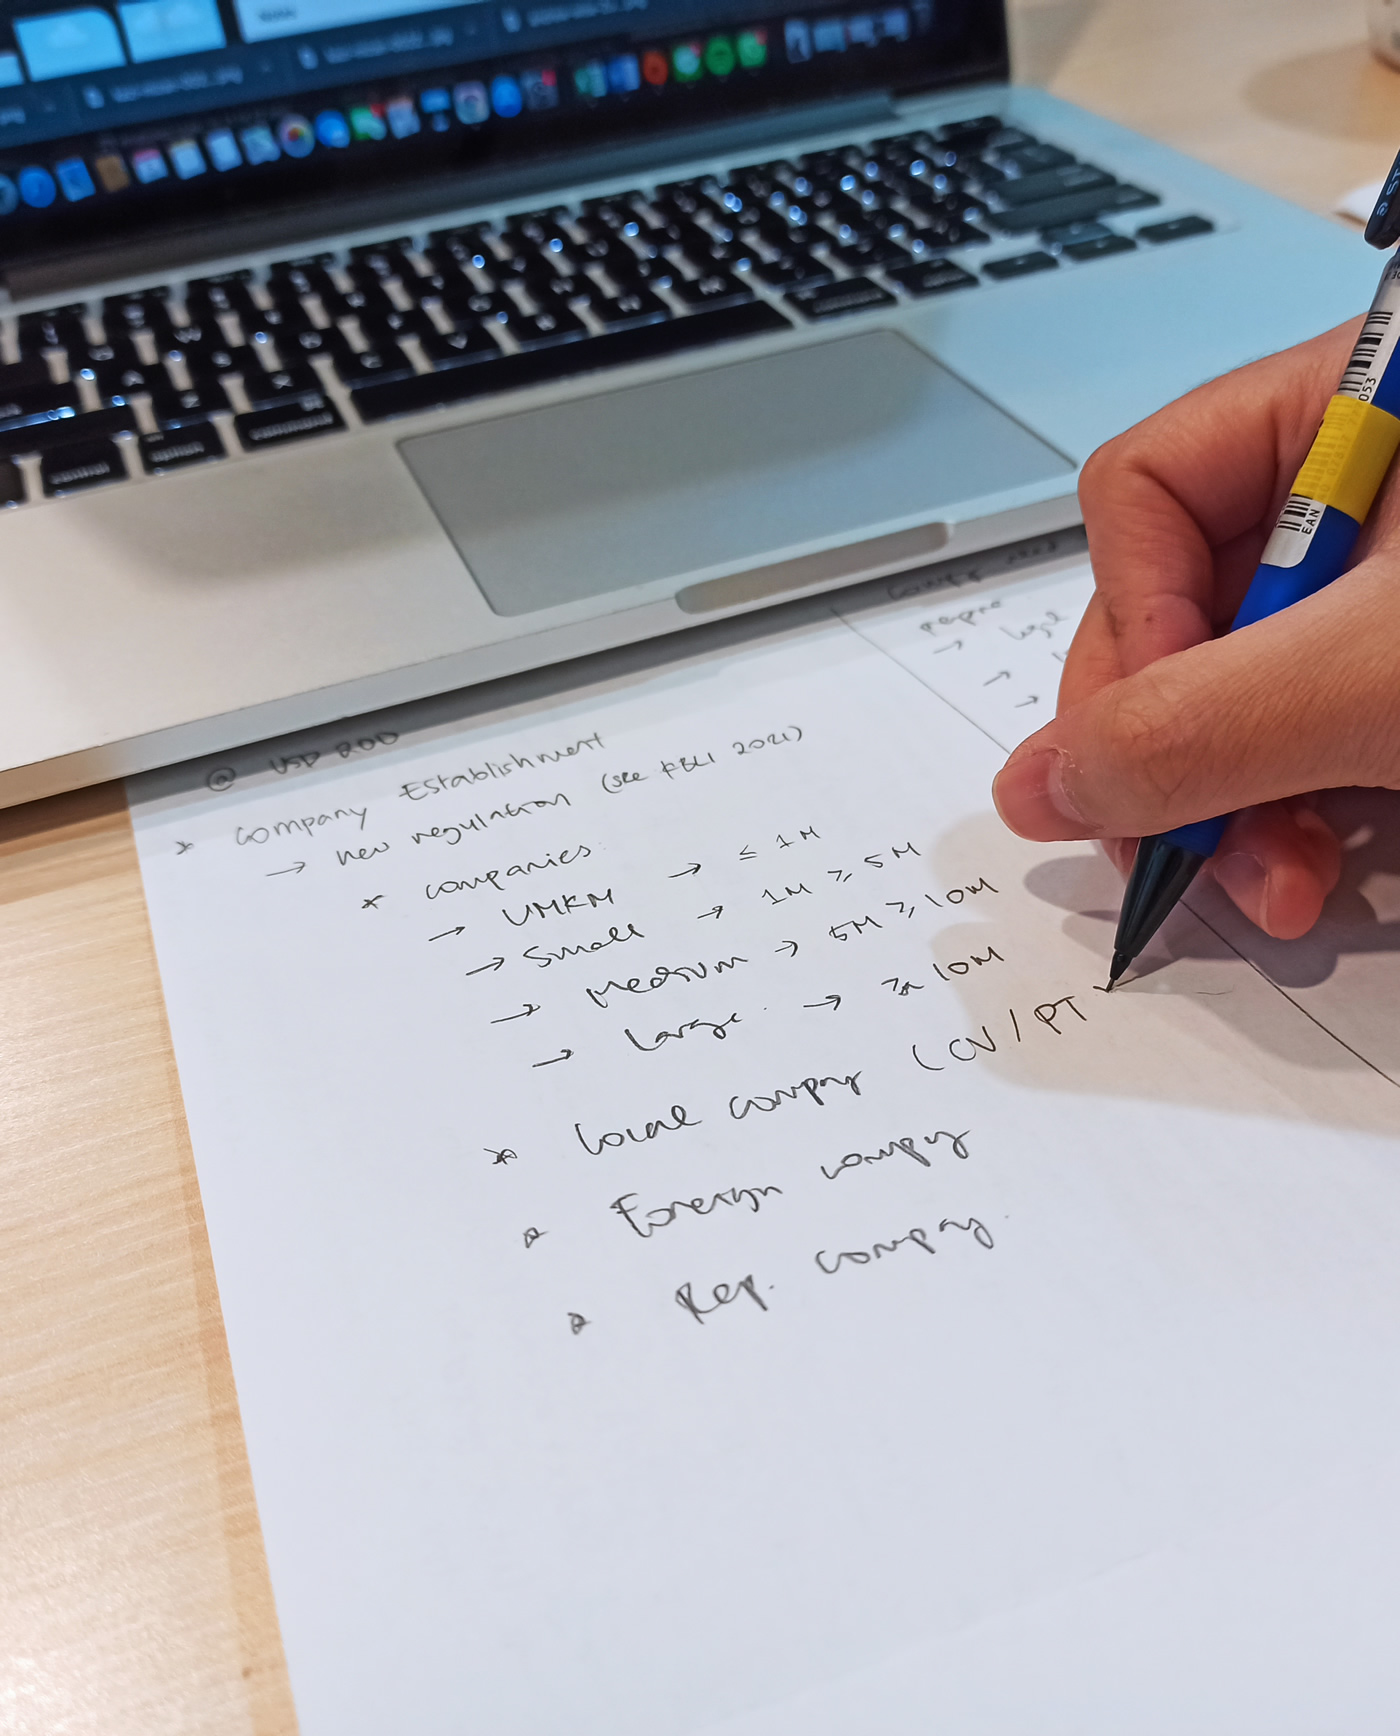 control
option
command
053
EAN
@ USD 200
* Company Establishment
→ new regulation (see KBLI 2021)
* companies:
→ UMKM → ≤ 1M
→ Small → 1M ≥ 5M
→ Medium → 5M ≥ 10M
→ Large → ≥ 10M
* Local company (CV / PT
* Foreign company
* Rep. company.
people
→ legal
→
→